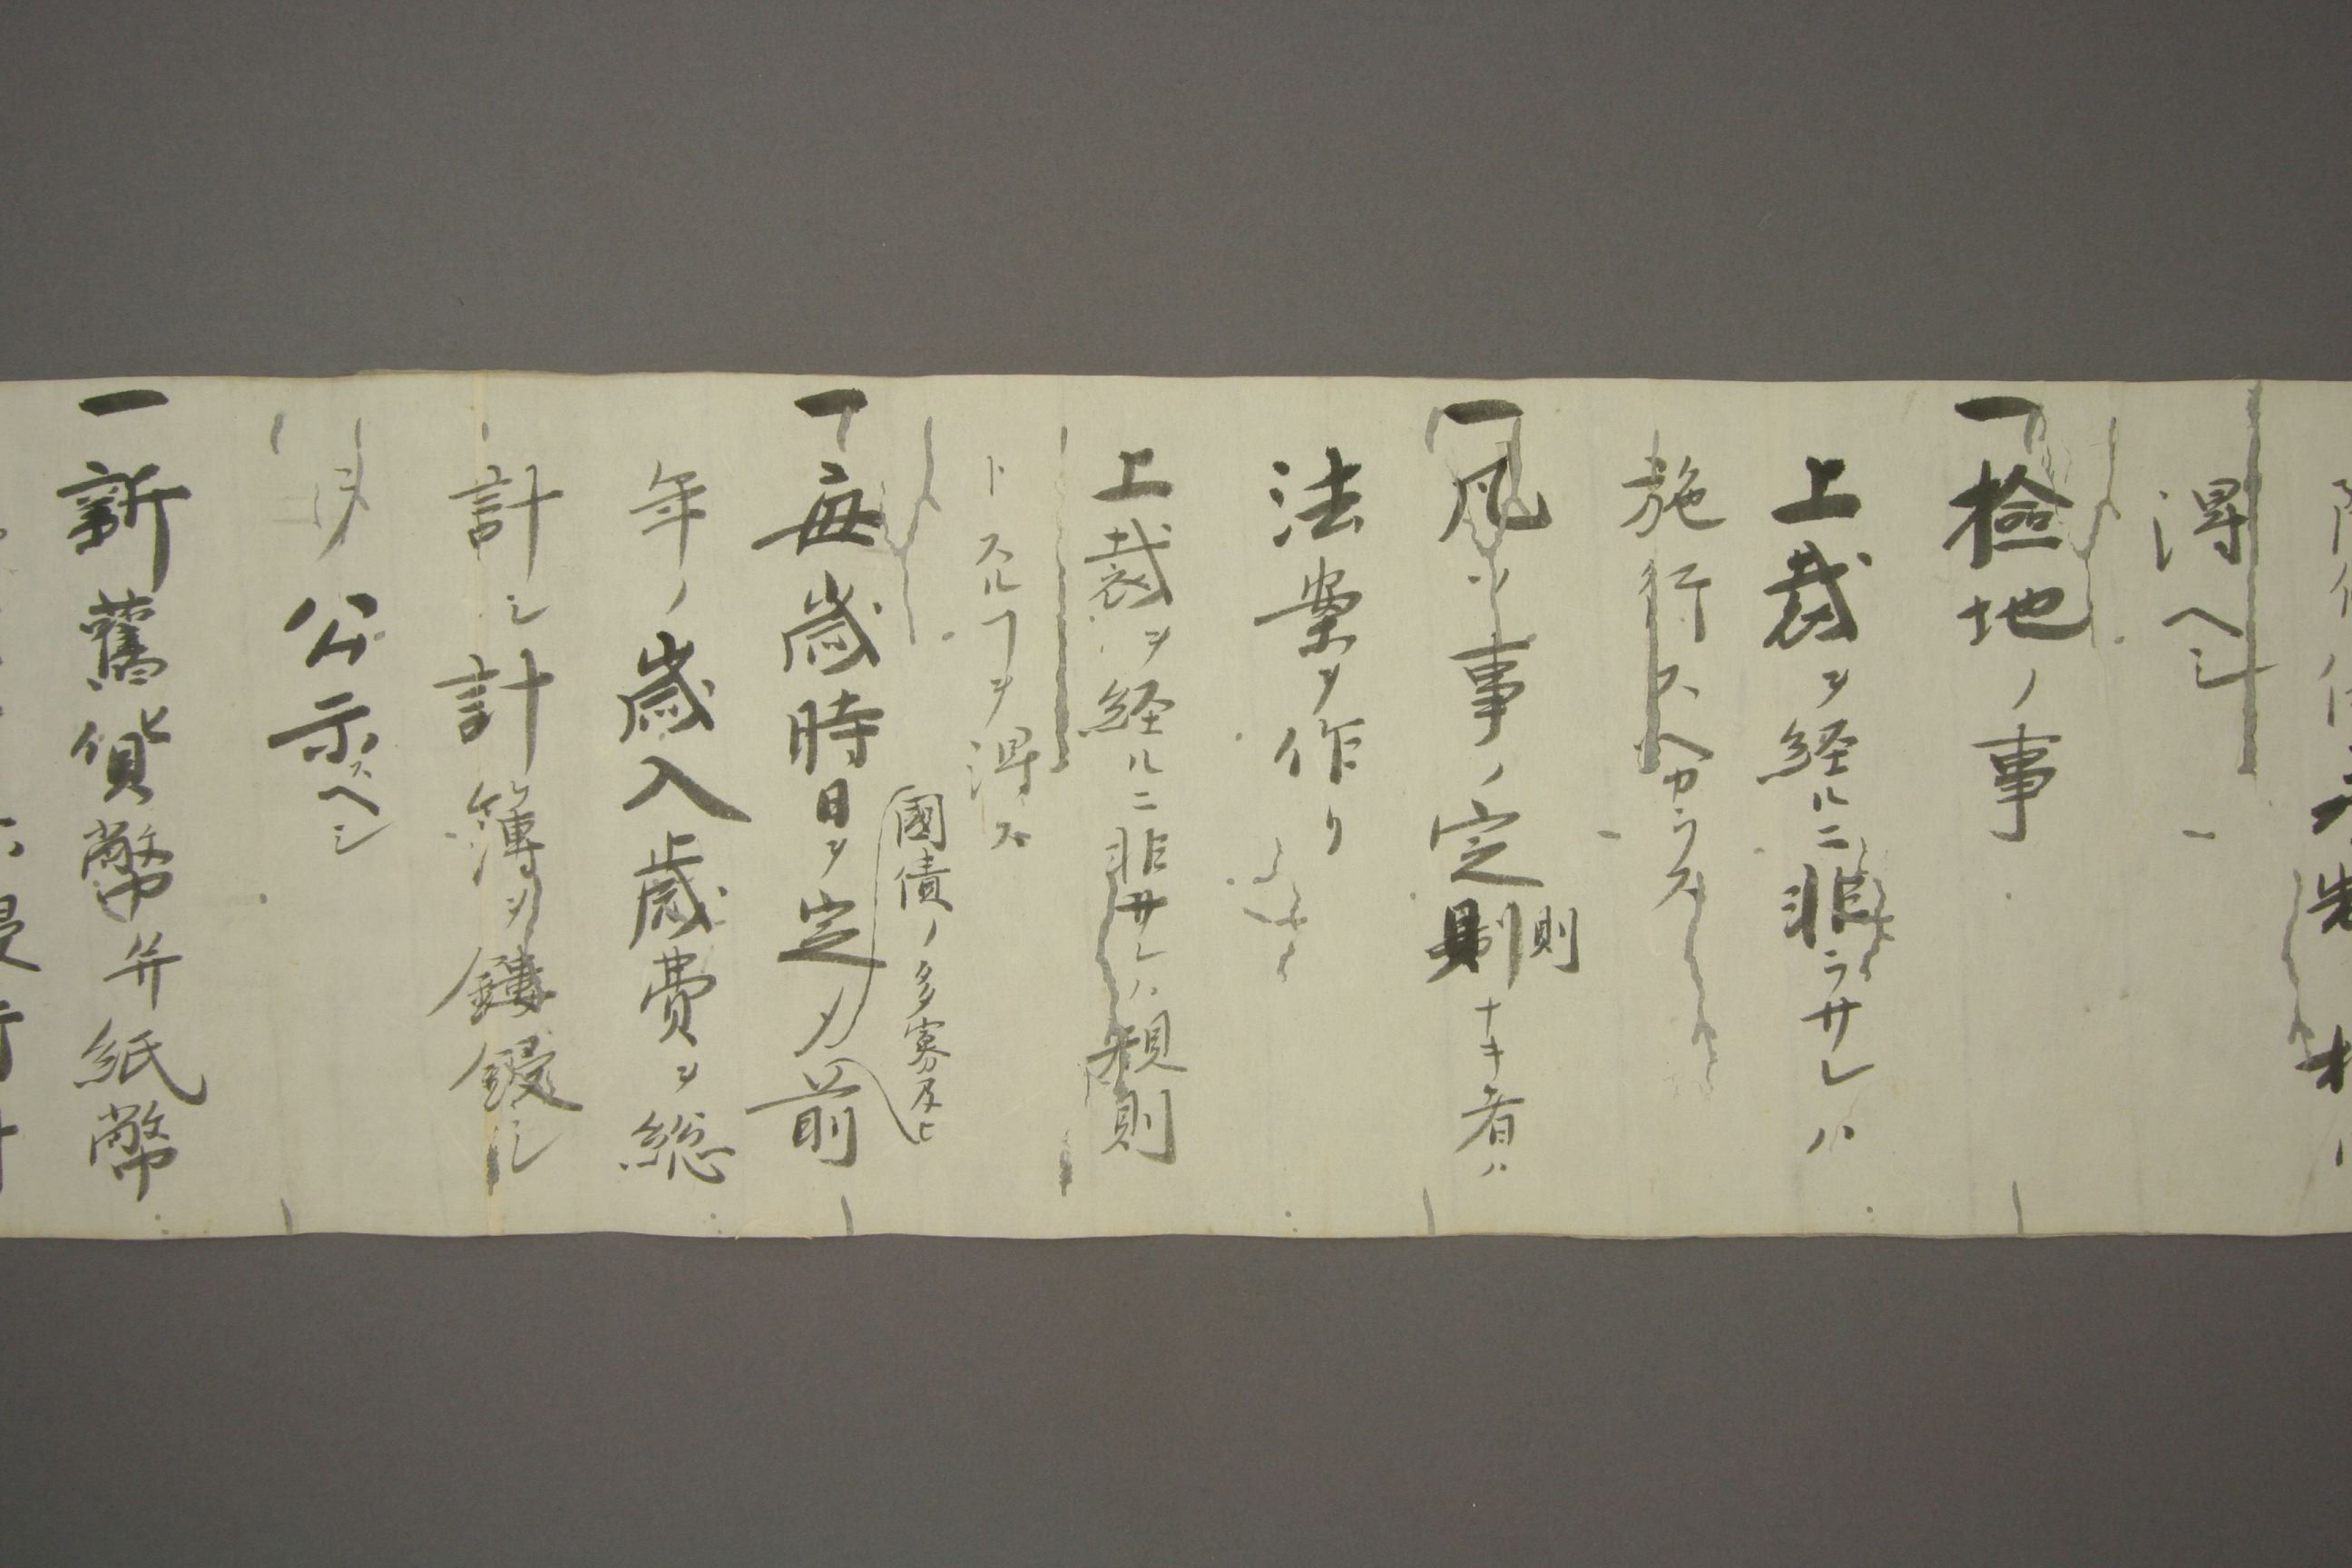 得ヘシ
一檢地ノ事
上裁ヲ経ルニ非ラサレハ
施行スヘカラス
一凡ソ事ノ定則ナキ者ハ
則
法案ヲ作リ
上裁ヲ経ルニ非サレハ規則
トスルヿヲ得ス
國債ノ多寡及ヒ
一每歳時日ヲ定メ前
年ノ歳入歳費ヲ総
計シ計簿ヲ鏤鋟シ
メ公示スヘシ
一新舊貨幣并紙幣